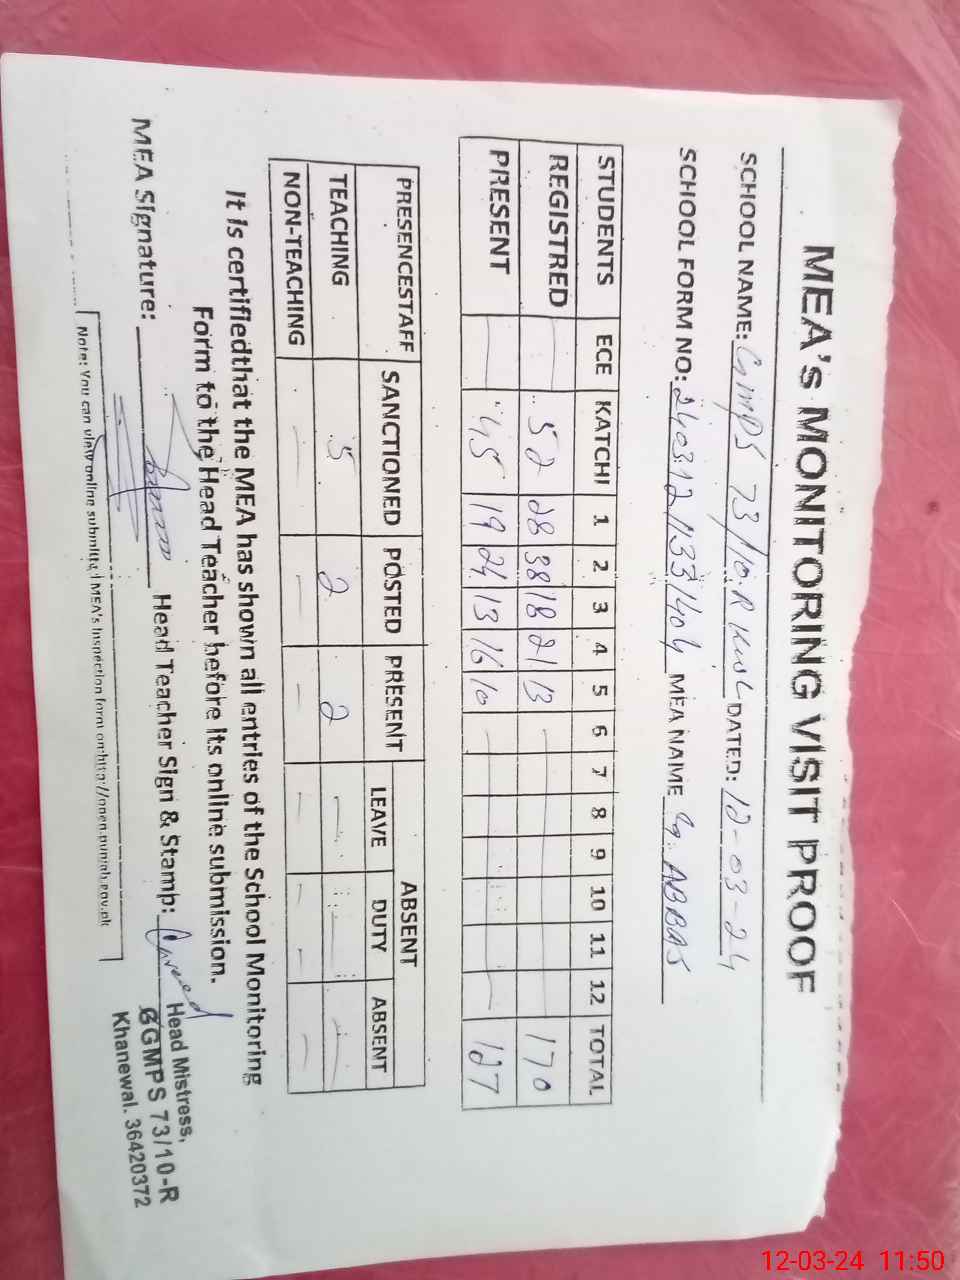 MEA's MONITORING VISIT PROOF
SCHOOL NAME: GMPS 73/10.R KWL DATED: 12-03-24
SCHOOL FORM NO: MEA NAME ABBAS
STUDENTS ECE KATCHI 1 2 3 4 5 6 7 8 9 10 11 12 TOTAL
REGISTRED — 52 28 38 18 21 13 — 170
PRESENT — 45 19 24 13 16 10 — 127
PRESENCESTAFF SANCTIONED POSTED PRESENT ABSENT
LEAVE DUTY ABSENT
TEACHING 5 2 2 — — —
NON-TEACHING — — — — — —
It is certifiedthat the MEA has shown all entries of the School Monitoring
Form to the Head Teacher before its online submission.
MEA Signature: Head Teacher Sign & Stamp:
Head Mistress,
GGMPS 73/10-R
Khanewal. 36420372
Note: You can view online submitted MEA's Inspection form on:http://open.punjab.gov.pk
12-03-24 11:50